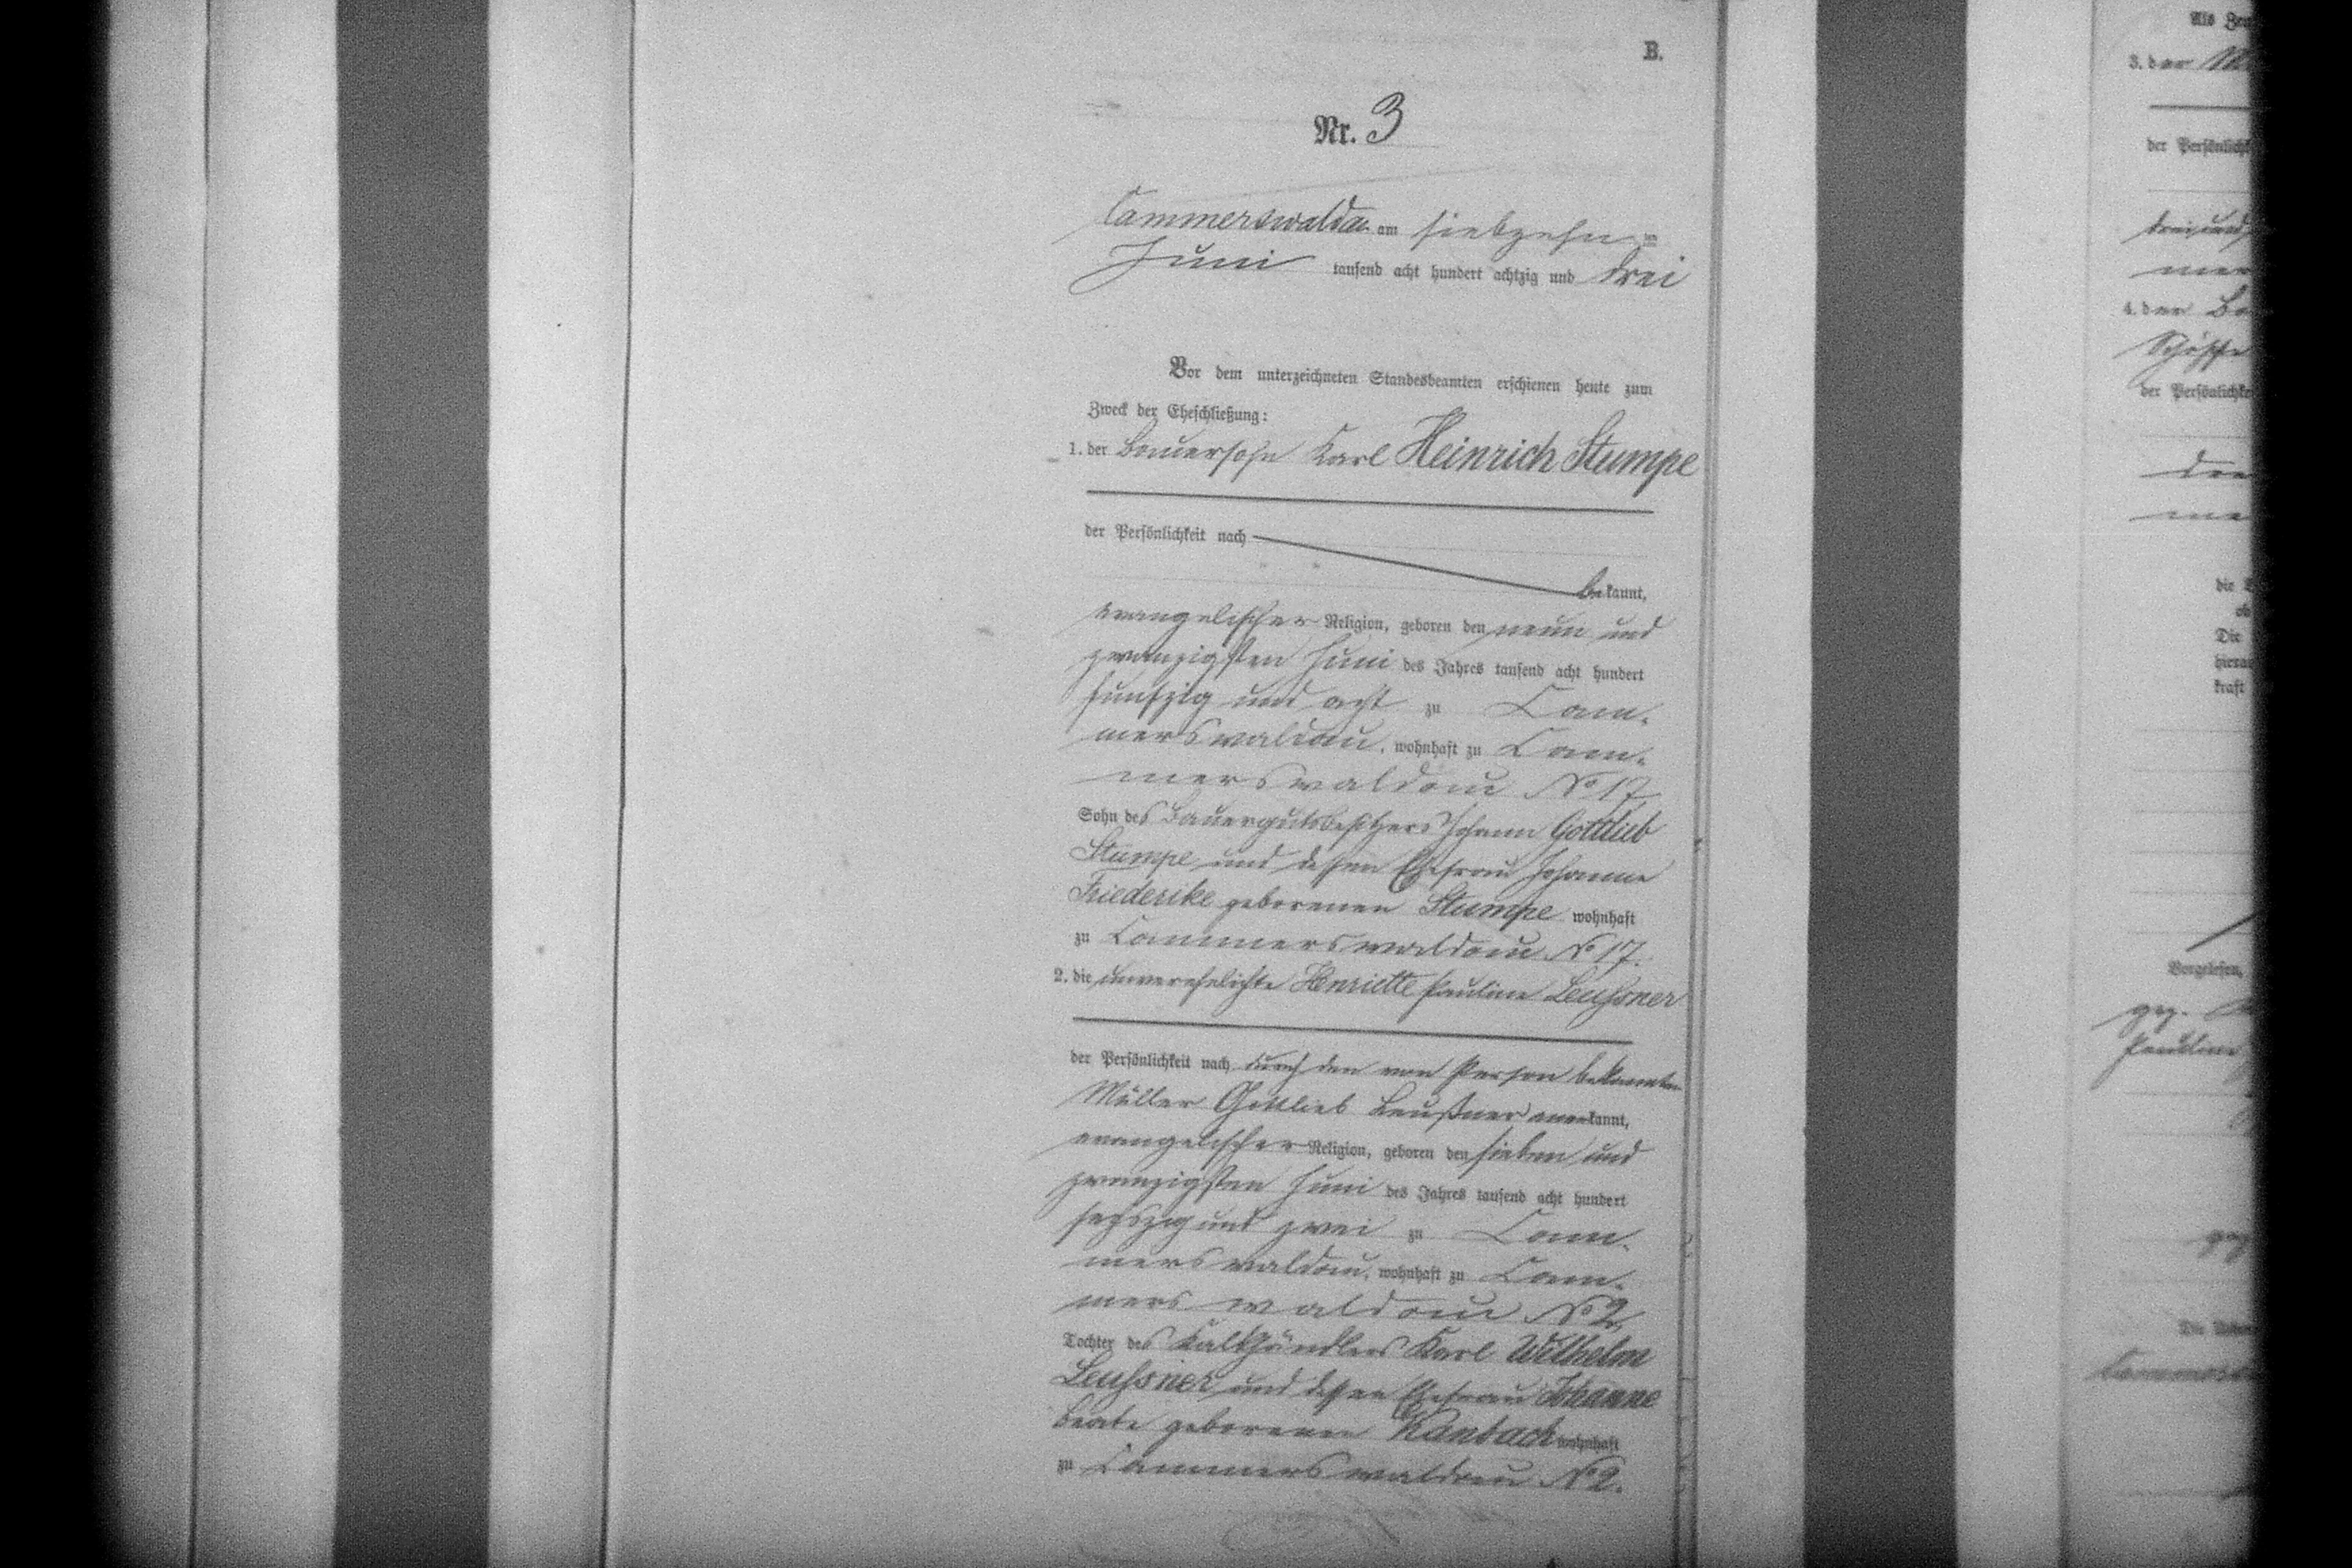 B.
Nr. 3
Cammerswaldau am siebzehn ten
Juni tausend acht hundert achtzig und drei
Vor dem unterzeichneten Standesbeamten erschienen heute zum
Zweck der Eheschließung:
1. der Bauersohn Karl Heinrich Stumpe
der Persönlichkeit nach
be kannt,
evangelischer Religion, geboren den neun und
zwanzigsten Juni des Jahres tausend acht hundert
funfzig und acht zu Cam-
merswaldau, wohnhaft zu Cam-
merswaldau No 17,
Sohn des Bauergutsbesitzers Johann Gottlieb
Stumpe und dessen Ehefrau Johanne
Friederike geborenen Stumpe wohnhaft
zu Cammerswaldau No 17.
2. die unverehelichte Henriette Pauline Leussner
der Persönlichkeit nach durch den von Person bekannten
Müller Gottlieb Leußner anerkannt,
evangelischer Religion, geboren den sieben und
zwanzigsten Juni des Jahres tausend acht hundert
sechszig und zwei zu Cam-
merswaldau, wohnhaft zu Cam-
merswaldau No 2,
Tochter des Kalkhändlers Karl Wilhelm
Leussner und dessen Ehefrau Johanne
Beate geborenen Kanbach wohnhaft
zu Cammerswaldau No 2.
3. der
der Persönlichk
drei und
mer
4. der
Schösse
der Persönlichke
die
Die
hiera
kraft
Vorgelesen,
gez.
Pauline
gez